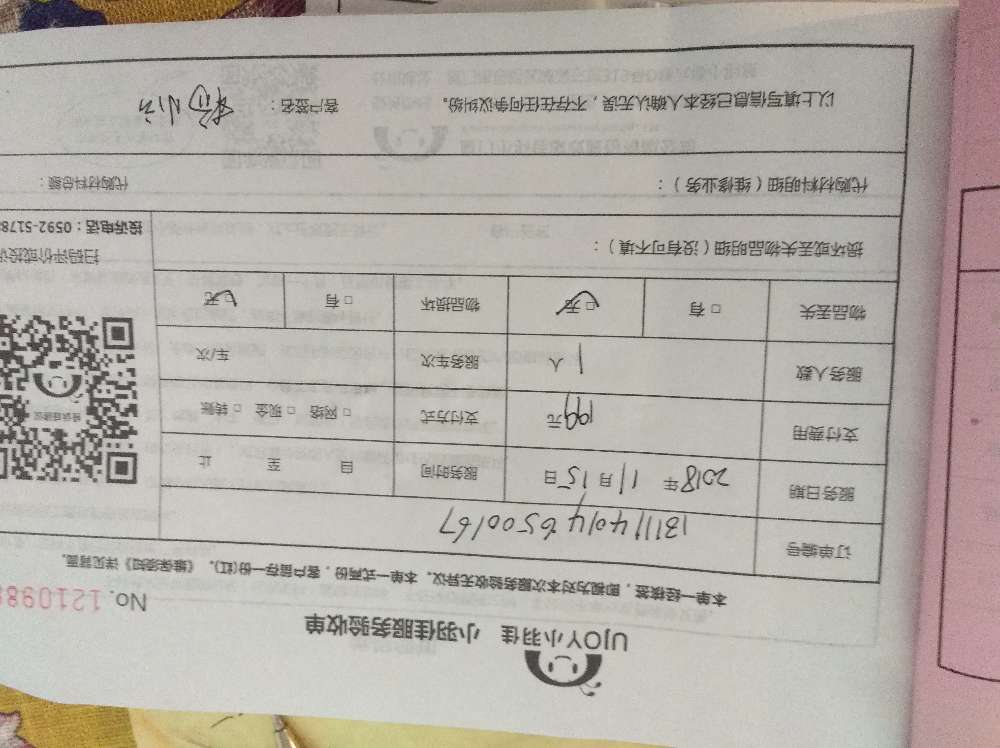 UJOY小羽佳 小羽佳服务验收单
No. 121098
本单一经核签，即视为对本次服务验收无异议。本单一式两份，客户留存一份(红)。《维保须知》详见背面。
订单编号 181114014 6500167
服务日期 2018年 11月15日 服务时间 自 至 止
支付费用 199元 支付方式 □ 网络 □ 现金 □ 转账
服务人数 1 人 服务车次 车/次
物品丢失 □ 有 □ 无 物品损坏 □ 有 □ 无
损坏或丢失物品明细（没有可不填）：
扫码评价或投诉
投诉电话：0592-5178
代购材料明细（维修业务）：
代购材料总额：
以上填写信息已经本人确认无误，不存在任何争议纠纷。
客户签名：